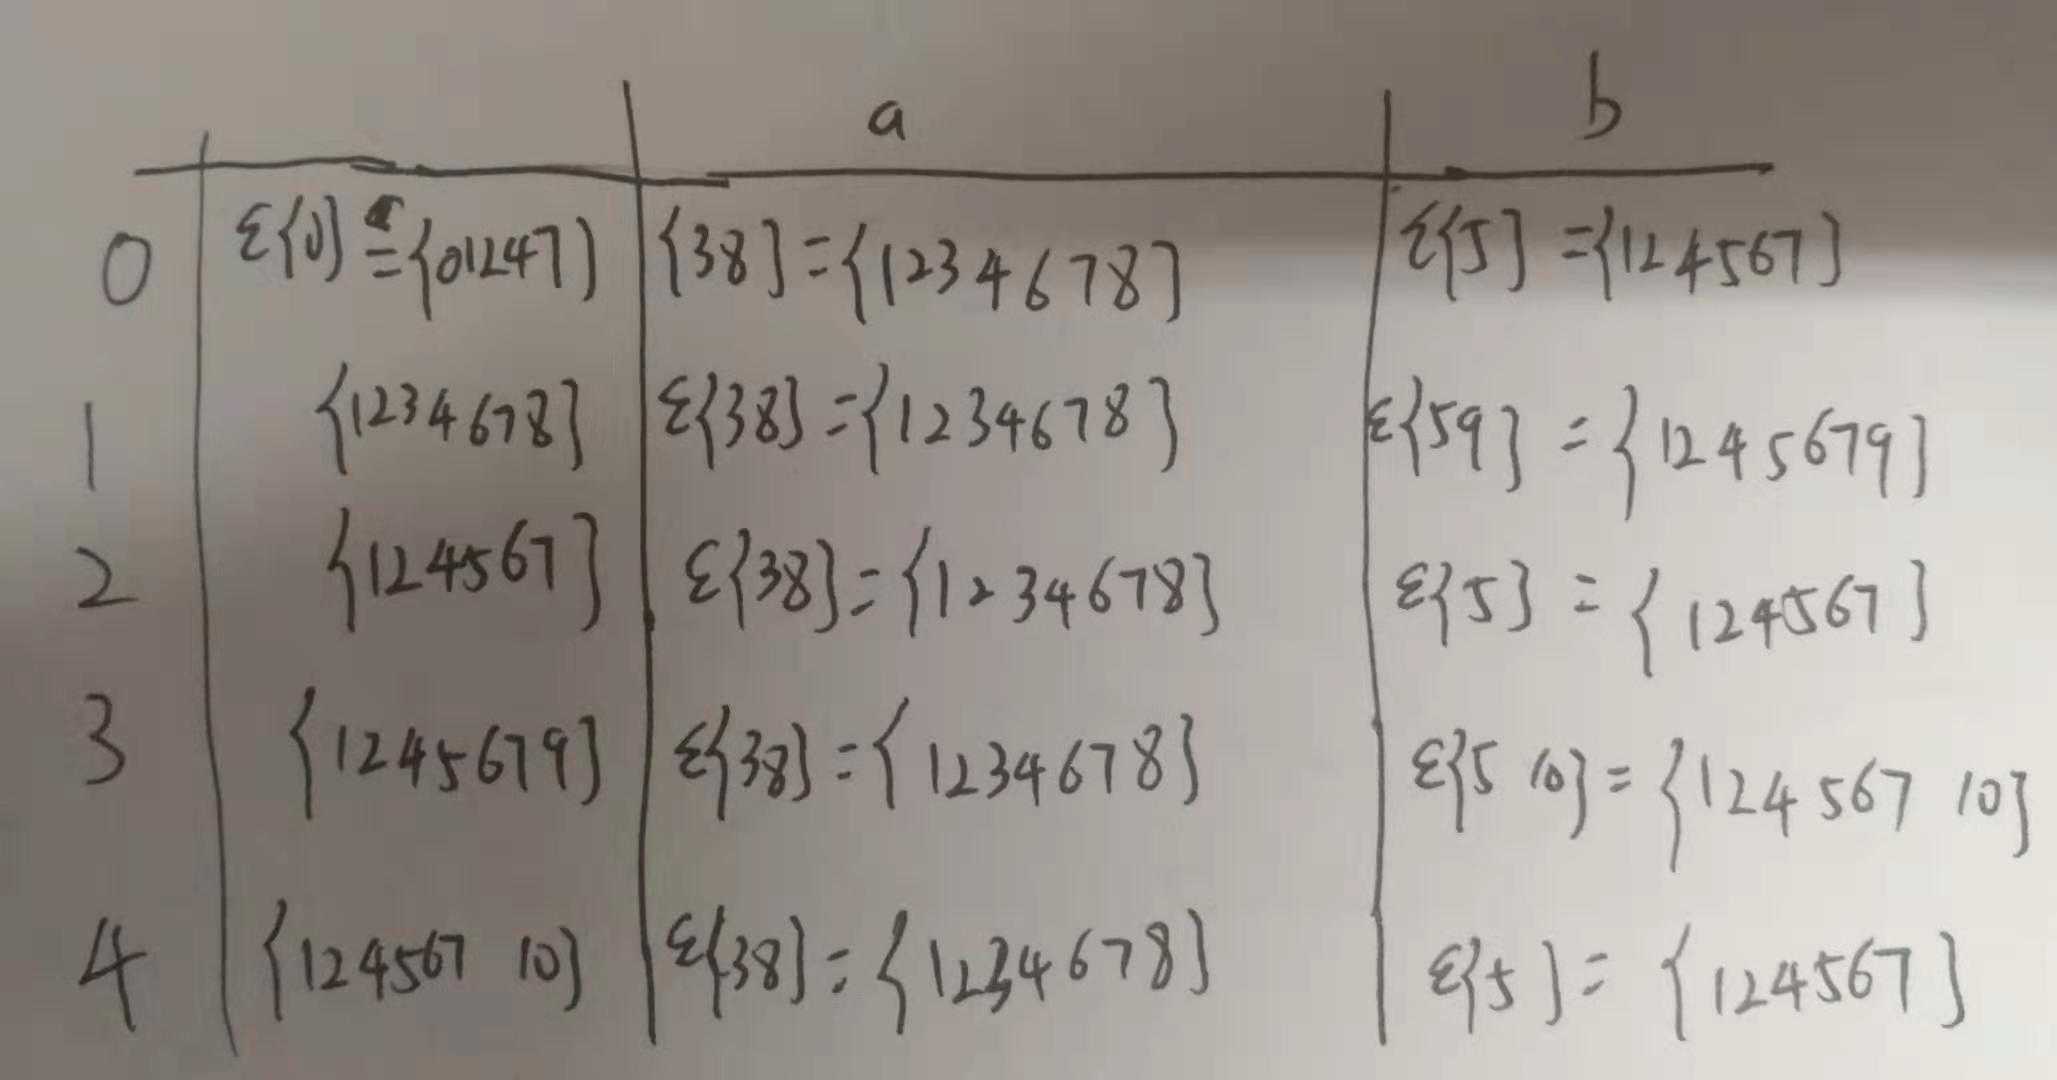 a b
0 ε{0} = {01247} {38} = {1234678} ε{5} = {124567}
1 {1234678} ε{38} = {1234678} ε{59} = {1245679}
2 {124567} ε{38} = {1234678} ε{5} = {124567}
3 {1245679} ε{38} = {1234678} ε{5 10} = {124567 10}
4 {124567 10} ε{38} = {1234678} ε{5} = {124567}